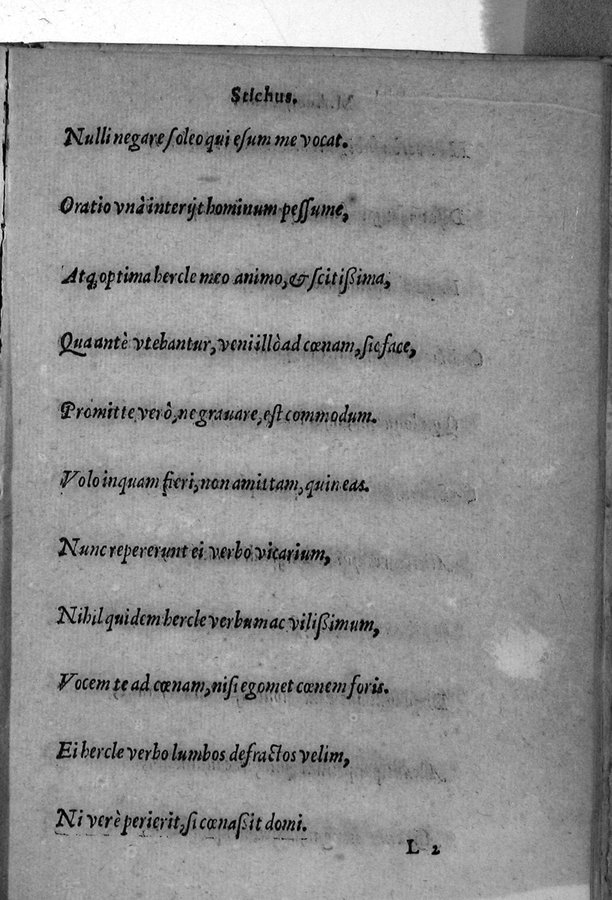 Stichus.
Nulli negare soleo qui esum me vocat.
Oratio vnà interijt hominum pessume,
Atq; optima hercle meo animo, & scitißima,
Qua antè vtebantur, veni illò ad cœnam, sic face,
Promitte verò, ne grauare, est commodum.
Volo inquam fieri, non amittam, quin eas.
Nunc repererunt ei verbo vicarium,
Nihil quidem hercle verbum ac vilißimum,
Vocem te ad cœnam, nisi egomet cœnem foris.
Ei hercle verbo lumbos defractos velim,
Ni verè perierit, si cœnaßit domi.
L 2